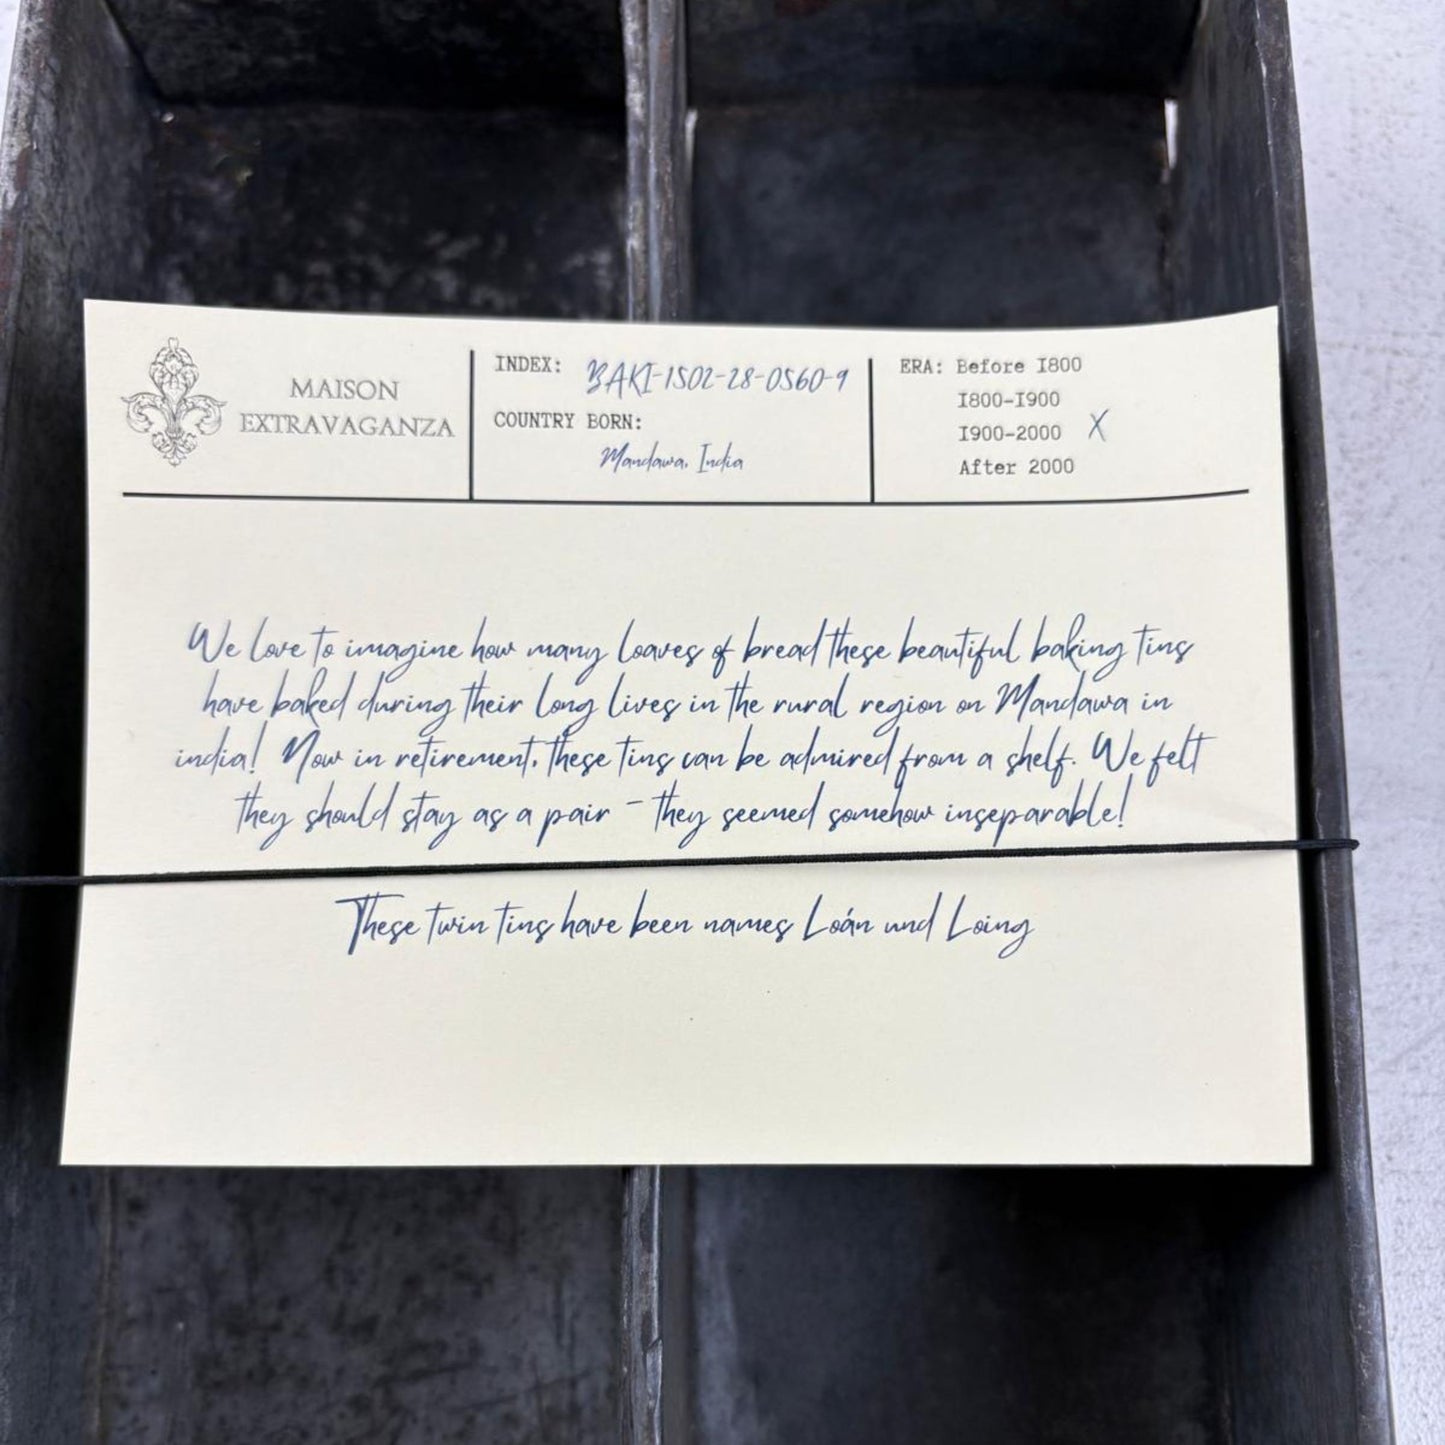 MAISON
EXTRAVAGANZA
INDEX: BAKI-1502-28-0560-9
COUNTRY BORN:
Mandawa, India
ERA: Before 1800
1800-1900
1900-2000 X
After 2000
We love to imagine how many loaves of bread these beautiful baking tins
have baked during their long lives in the rural region on Mandawa in
india! Now in retirement, these tins can be admired from a shelf. We felt
they should stay as a pair - they seemed somehow inseparable!
These twin tins have been names Loán und Loing